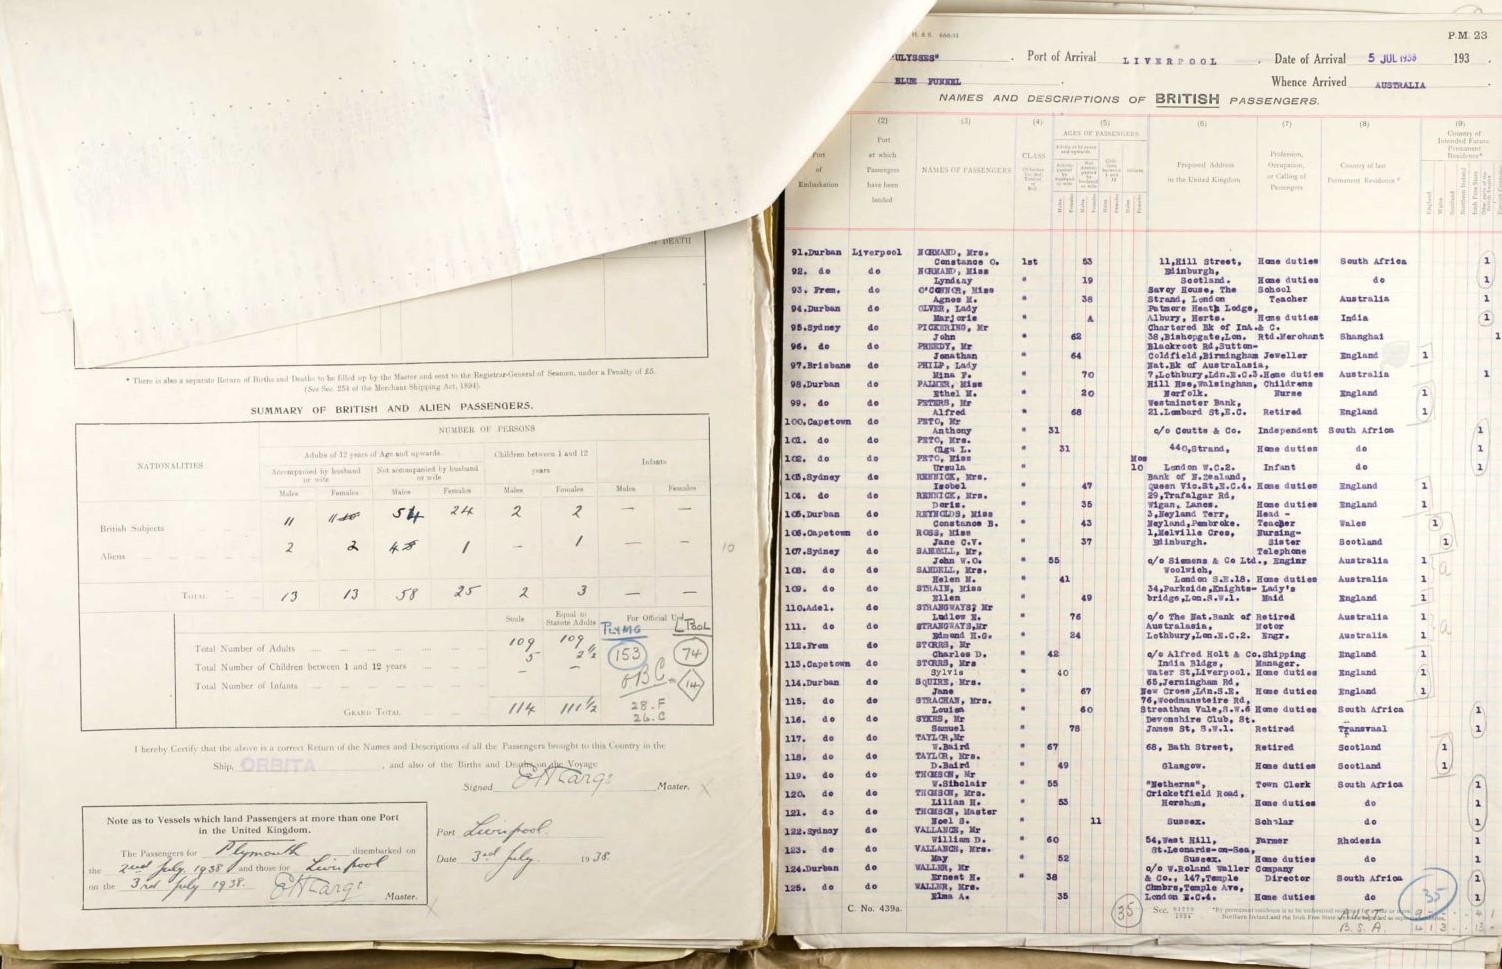 OF DEATH
* There is also a separate Return of Births and Deaths to be filled up by the Master and sent to the Registrar-General of Seamen, under a Penalty of £5.
(See Sec. 254 of the Merchant Shipping Act, 1894).
SUMMARY OF BRITISH AND ALIEN PASSENGERS.
NUMBER OF PERSONS
NATIONALITIES
Adults of 12 years of Age and upwards.
Children between 1 and 12 years
Infants
Accompanied by husband or wife
Not accompanied by husband or wife
Males Females Males Females Males Females Males Females
British Subjects 11 11 54 24 2 2 — —
Aliens 2 2 4 1 - 1 — —
TOTAL 13 13 58 25 2 3 — —
Souls
Equal to Statute Adults
For Official Use
PLYMO
L'POOL
Total Number of Adults 109 109
153
74
Total Number of Children between 1 and 12 years 5 2½
Total Number of Infants — —
14
GRAND TOTAL 114 111½
28.F
26.C
I hereby Certify that the above is a correct Return of the Names and Descriptions of all the Passengers brought to this Country in the
Ship, ORBITA, and also of the Births and Deaths on the Voyage
Signed Master.
Note as to Vessels which land Passengers at more than one Port
in the United Kingdom.
The Passengers for Plymouth disembarked on
the 2nd July 1938 and those for Liverpool
on the 3rd July 1938.
Master.
Port Liverpool.
Date 3rd July. 1938.
10
P.M. 23
ULYSSES"
Port of Arrival LIVERPOOL
Date of Arrival 5 JUL 1938 193
BLUE FUNNEL
Whence Arrived AUSTRALIA
NAMES AND DESCRIPTIONS OF BRITISH PASSENGERS.
(2) (3) (4) (5) (6) (7) (8) (9)
Port of Embarkation
Port at which Passengers have been landed
NAMES OF PASSENGERS
CLASS
AGES OF PASSENGERS
Proposed Address in the United Kingdom
Profession, Occupation, or Calling of Passengers
Country of last Permanent Residence*
Country of Intended Future Permanent Residence*
91.Durban Liverpool NORMAND, Mrs.
Constance O. 1st 53 11,Hill Street, Home duties South Africa 1
92. do do NORMAND, Miss Edinburgh,
Lyndsay " 19 Scotland. Home duties do 1
93. Frem. do O'CONNOR, Miss Savoy House, The School
Agnes M. " 38 Strand, London Teacher Australia 1
94.Durban do OLVER, Lady Patmore Heath Lodge,
Marjorie " A Albury, Herts. Home duties India 1
95.Sydney do PICKERING, Mr Chartered Bk of Ind.& C.
John " 62 38,Bishopgate,Lon. Rtd.Merchant Shanghai 1
96. do do PREEDY, Mr Blackroot Rd,Sutton-
Jonathan " 64 Coldfield,Birmingham Jeweller England 1
97.Brisbane do PHILP, Lady Nat.Bk of Australasia,
Mina F. " 70 7,Lothbury,Ldn.E.C.3.Home duties Australia 1
98.Durban do PALMER, Miss Hill Hse,Walsingham, Childrens
Ethel M. " 20 Norfolk. Nurse England 1
99. do do PETERS, Mr Westminster Bank,
Alfred " 68 21.Lombard St,E.C. Retired England 1
100.Capetown do PETO, Mr
Anthony " 31 c/o Coutts & Co. Independent South Africa 1
101. do do PETO, Mrs.
Olga L. " 31 440,Strand, Home duties do 1
102. do do PETO, Miss Mos
Ursula " 10 London W.C.2. Infant do 1
103.Sydney do RENNICK, Mrs. Bank of N.Zealand,
Isobel " 47 Queen Vic.St,E.C.4. Home duties England 1
104. do do RENNICK, Mrs. 29,Trafalgar Rd,
Doris. " 35 Wigan, Lancs. Home duties England 1
105.Durban do REYNOLDS, Miss 3,Neyland Terr, Head -
Constance B. " 43 Neyland,Pembroke. Teacher Wales 1
106.Capetown do ROSS, Miss 1,Melville Cres, Nursing-
Jane C.V. " 37 Edinburgh. Sister Scotland 1
107.Sydney do SANDELL, Mr, Telephone
John W.O. " 55 c/o Siemens & Co Ltd., Enginr Australia 1
108. do do SANDELL, Mrs. Woolwich,
Helen M. " 41 London S.E.18. Home duties Australia 1
109. do do STRAIN, Miss 34,Parkside,Knights- Lady's
Ellen " 49 bridge,Lon.S.W.1. Maid England 1
110.Adel. do STRANGWAYS, Mr
Ludlow H. " 76 c/o The Nat.Bank of Retired Australia 1
111. do do STRANGWAYS,Mr Australasia, Motor
Edmond H.G. " 24 Lothbury,Lon.E.C.2. Engr. Australia 1
112.Frem do STORRS, Mr
Charles D. " 42 c/o Alfred Holt & Co.Shipping England 1
113.Capetown do STORRS, Mrs India Bldgs, Manager.
Sylvia " 40 Water St,Liverpool. Home duties England 1
114.Durban do SQUIRE, Mrs. 65,Jerningham Rd,
Jane " 67 New Cross,Ldn.S.E. Home duties England 1
115. do do STRACHAN, Mrs. 76,Woodmansteire Rd,
Louisa " 60 Streatham Vale,S.W.6 Home duties South Africa 1
116. do do SYKES, Mr Devonshire Club, St.
Samuel " 78 James St, S.W.1. Retired Transvaal 1
117. do do TAYLOR,Mr
W.Baird " 67 68, Bath Street, Retired Scotland 1
118. do do TAYLOR, Mrs.
D.Baird " 49 Glasgow. Home duties Scotland 1
119. do do THOMSON, Mr
W.Sinclair " 55 "Netherns", Town Clerk South Africa 1
120. do do THOMSON, Mrs. Cricketfield Road,
Lilian H. " 53 Horsham, Home duties do 1
121. do do THOMSON, Master
Noel S. " 11 Sussex. Scholar do 1
122.Sydney do VALLANCE, Mr
William D. " 60 54,West Hill, Farmer Rhodesia 1
123. do do VALLANCE, Mrs. St.Leonards-on-Sea,
May " 52 Sussex. Home duties do 1
124.Durban do WALLER, Mr c/o W.Roland Waller Company
Ernest H. " 38 & Co., 147,Temple Director South Africa 1
125. do do WALLER, Mrs. Chmbrs,Temple Ave,
Elma A. " 35 London E.C.4. Home duties do 1
C. No. 439a.
35
35
AUST
B.S.A.